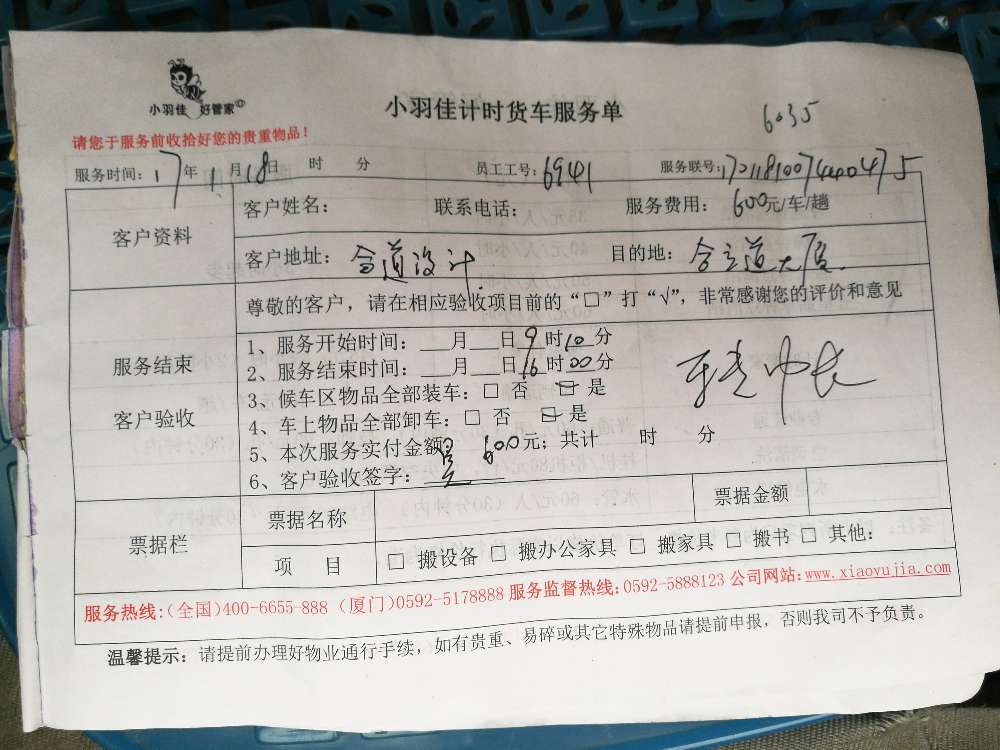 小羽佳 好管家
小羽佳计时货车服务单
6035
请您于服务前收拾好您的贵重物品！
服务时间：17年1月18日 时 分 员工工号：6941 服务联号：
客户资料
客户姓名： 联系电话： 服务费用：600元/车/趟
客户地址：合道设计 目的地：合立道大厦
服务结束
客户验收
尊敬的客户，请在相应验收项目前的“□”打“√”，非常感谢您的评价和意见
1、服务开始时间：___月___日9时10分
2、服务结束时间：___月___日16时00分
3、候车区物品全部装车：□ 否 □ 是
4、车上物品全部卸车：□ 否 □ 是
5、本次服务实付金额 600元；共计 时 分
6、客户验收签字：
票据栏
票据名称 票据金额
项 目 □ 搬设备 □ 搬办公家具 □ 搬家具 □ 搬书 □ 其他：
服务热线：（全国）400-6655-888 （厦门）0592-5178888 服务监督热线：0592-5888123 公司网站：www.xiaoyujia.com
温馨提示：请提前办理好物业通行手续，如有贵重、易碎或其它特殊物品请提前申报，否则我司不予负责。